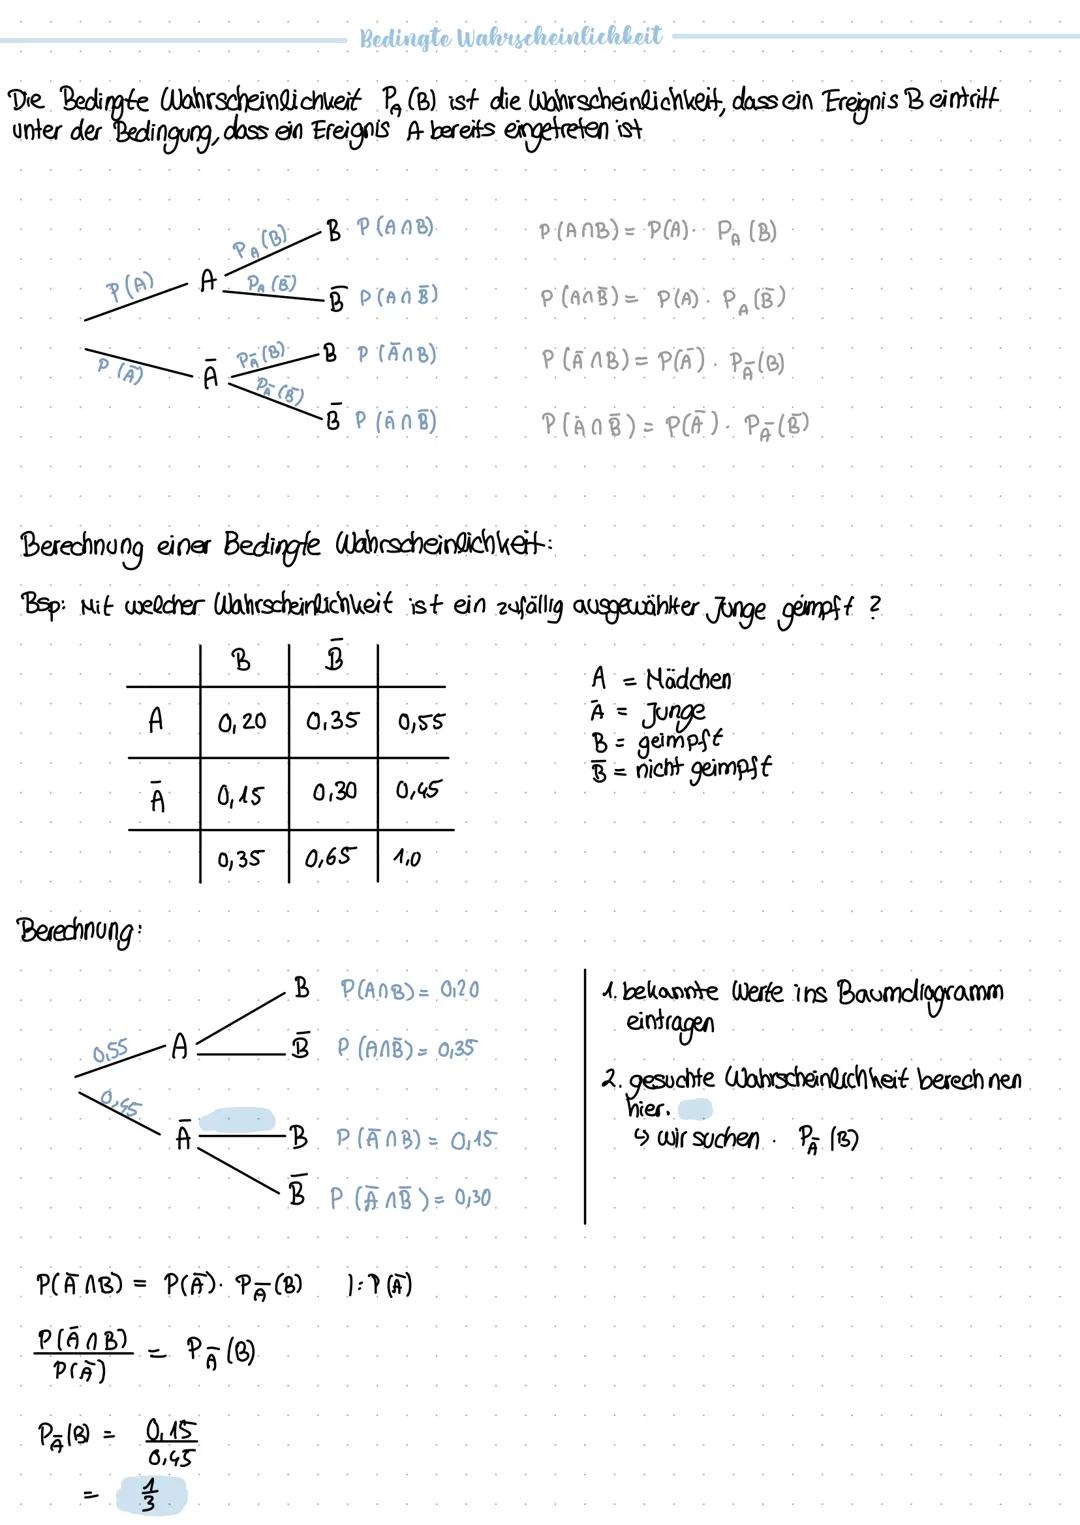 Bedingte Wahrscheinlichkeit
Die Bedingte Wahrscheinlichkeit P_A (B) ist die Wahrscheinlichkeit, dass ein Ereignis B eintritt
unter der Bedingung, dass ein Ereignis A bereits eingetreten ist
P(A) A P_A(B) B P(A∩B) P(A∩B) = P(A) · P_A (B)
P_A(B̄) B̄ P(A∩B̄) P(A∩B̄) = P(A) · P_A(B̄)
P(Ā) Ā P_Ā(B) B P(Ā∩B) P(Ā∩B) = P(Ā) · P_Ā(B)
P_Ā(B̄) B̄ P(Ā∩B̄) P(Ā∩B̄) = P(Ā) · P_Ā(B̄)
Berechnung einer Bedingte Wahrscheinlichkeit:
Bsp: Mit welcher Wahrscheinlichkeit ist ein zufällig ausgewählter Junge geimpft ?
B B̄
A 0,20 0,35 0,55
Ā 0,15 0,30 0,45
0,35 0,65 1,0
A = Mädchen
Ā = Junge
B = geimpft
B̄ = nicht geimpft
Berechnung:
0,55 A B P(A∩B) = 0,20
B̄ P(A∩B̄) = 0,35
0,45 Ā B P(Ā∩B) = 0,15
B̄ P(Ā∩B̄) = 0,30
1. bekannte Werte ins Baumdiagramm
eintragen
2. gesuchte Wahrscheinlichkeit berechnen
hier.
↳ wir suchen P_Ā (B)
P(Ā∩B) = P(Ā) · P_Ā(B) |: P(Ā)
P(Ā∩B)/P(Ā) = P_Ā(B)
P_Ā(B) = 0,15/0,45
= 1/3